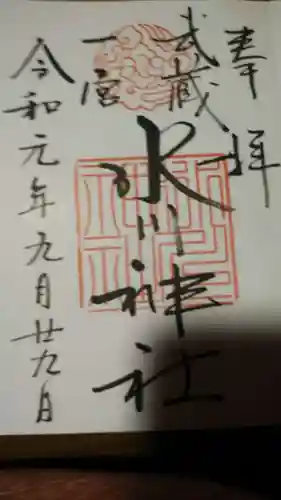 奉拝
武蔵
一宮
氷川神社
令和元年九月廿九日